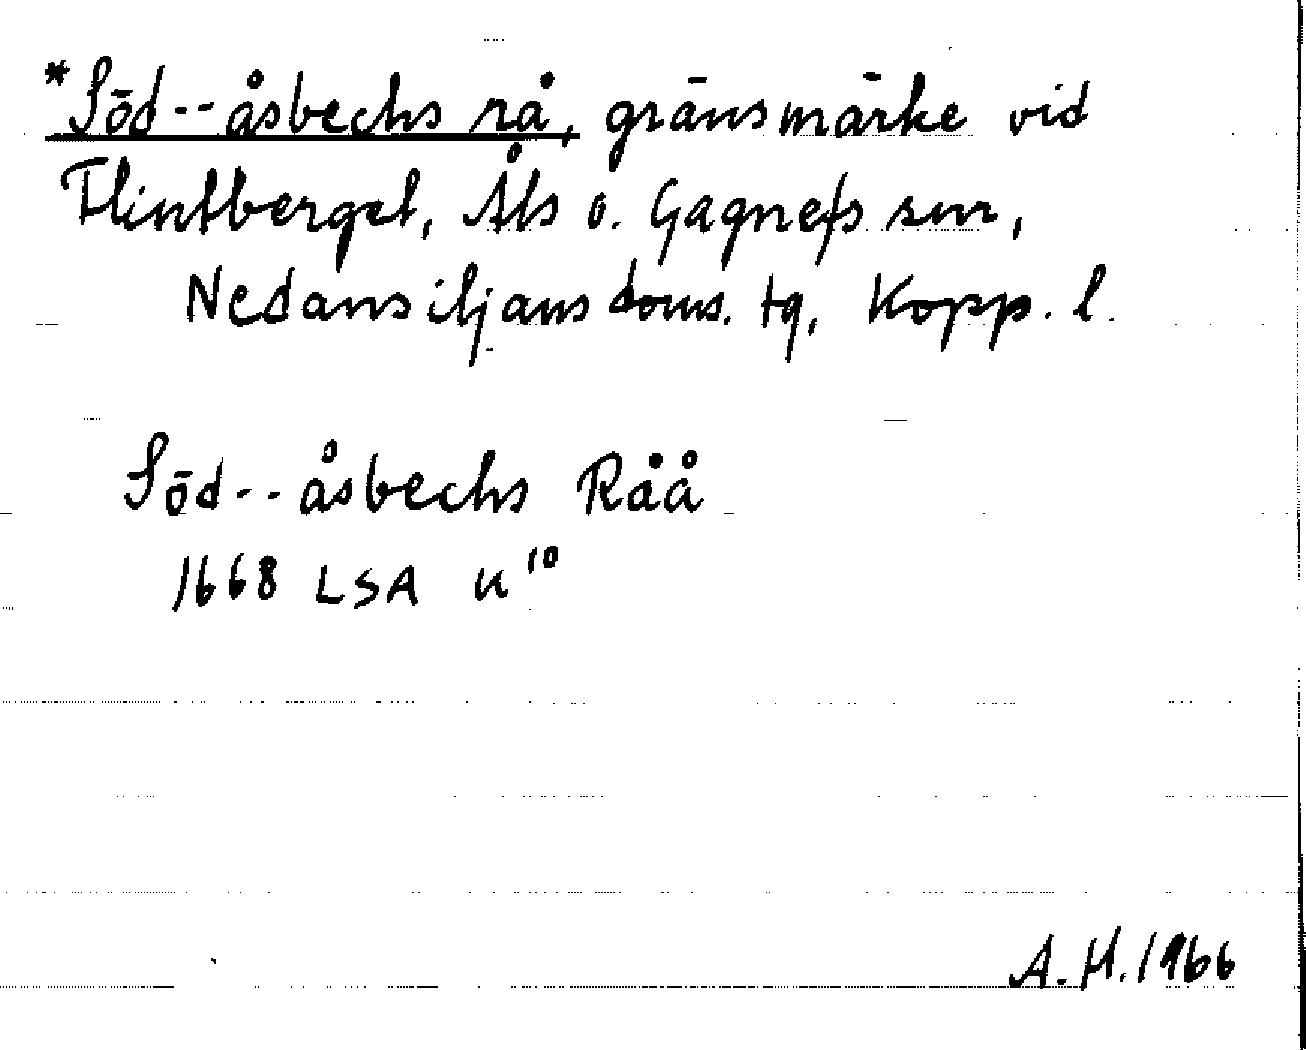 *Söd--åsbechs rå, gränsmärke vid
Flintberget, Åls o. Gagnefs snr,
Nedansiljans doms. tg, Kopp. l.
Söd--åsbechs Råå
1668 LSA U¹⁰
A.H. 1966